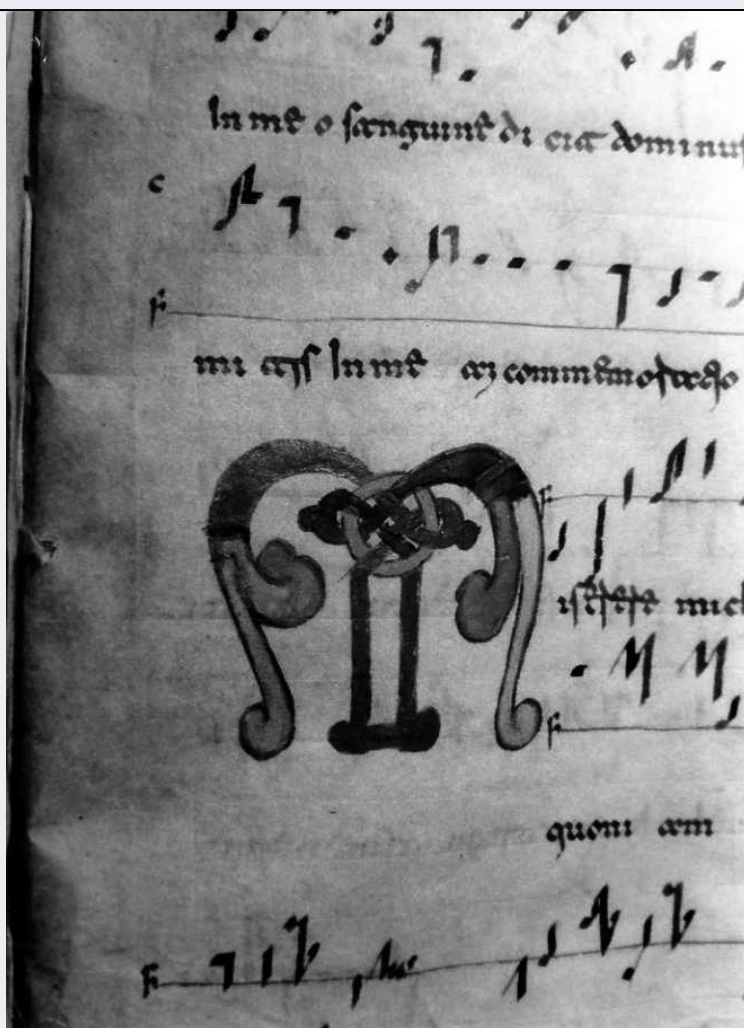 In me o sanguine di cit dominus
c
F
mi In me commemoratio
F
M iserere mic
F
quoni am
F